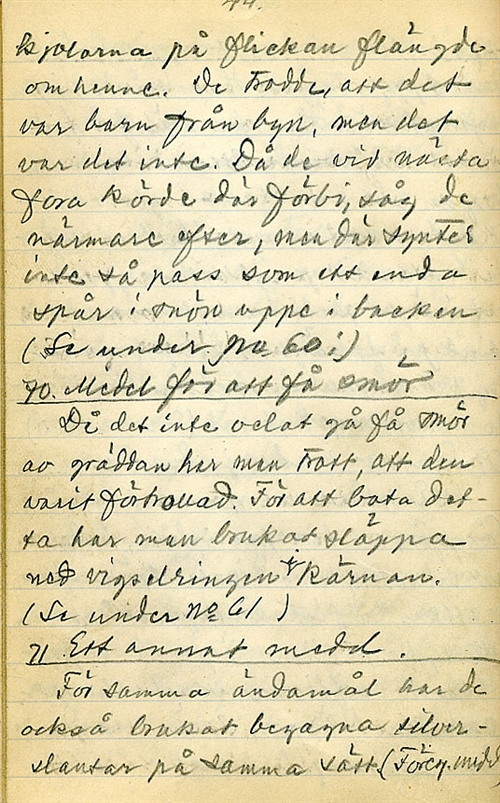 44.
kjolarna på flickan flängde
om henne. De trodde, att det
var barn från byn, men det
var det inte. Då de vid nästa
fora körde där förbi, såg de
närmare efter, men där syntes
inte så pass som ett enda
spår i snön uppe i backen
(Se under no 60!)
70. Medel för att få smör
Då det inte velat gå få smör
av grädden har man trott, att den
varit förtrollad. För att bota det-
ta har man brukat släppa
ned vigselringen i kärnan.
(Se under No 61)
71 Ett annat medel.
För samma ändamål har de
också brukat begagna silver-
slantar på samma sätt. (Föreg. medd